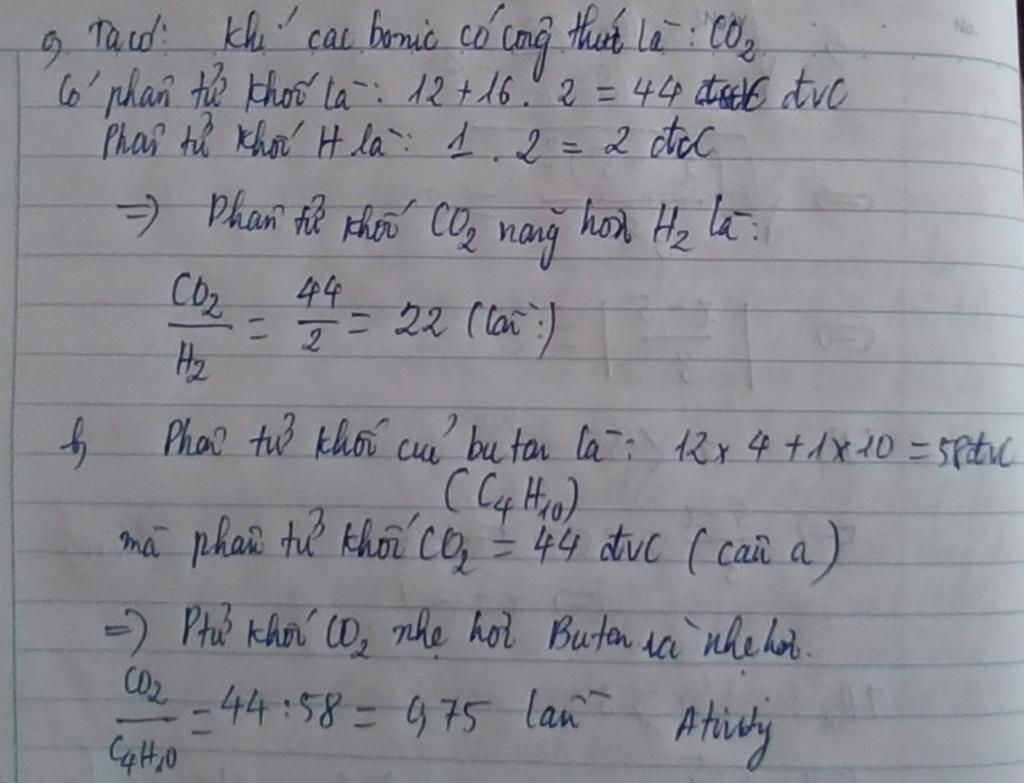 a, Ta có: Khí cacbonic có công thức là: CO₂
Có phân tử khối là: 12 + 16 . 2 = 44 đvC
Phân tử khối H là: 1 . 2 = 2 đvC
=> Phân tử khối CO₂ nặng hơn H₂ là:
CO₂/H₂ = 44/2 = 22 (lần)
b, Phân tử khối của butan là: 12 x 4 + 1 x 10 = 58 đvC
(C₄H₁₀)
mà phân tử khối CO₂ = 44 đvC (câu a)
=> Ptử khối CO₂ nhẹ hơn Butan và nhẹ hơn.
CO₂/C₄H₁₀ = 44 : 58 = 0,75 lần